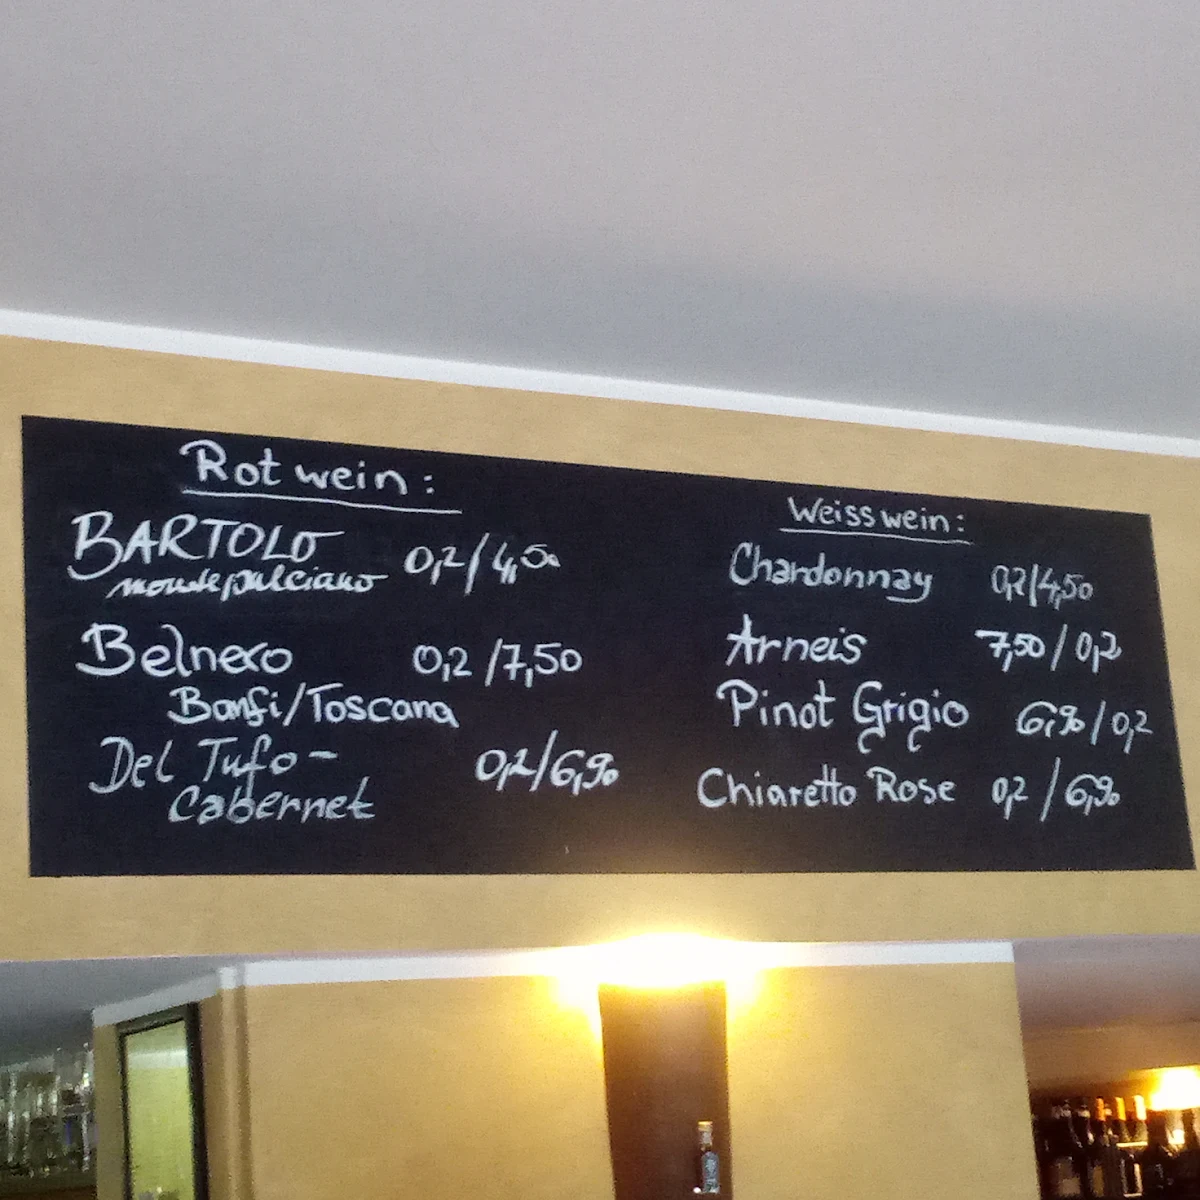 Rotwein:
BARTOLO 0,2/4,50
montepulciano
Belnero 0,2/7,50
Banfi/Toscana
Del Tufo- 0,2/6,90
Cabernet
Weisswein:
Chardonnay 0,2/4,50
Arneis 7,50/0,2
Pinot Grigio 6,90/0,2
Chiaretto Rose 0,2/6,90